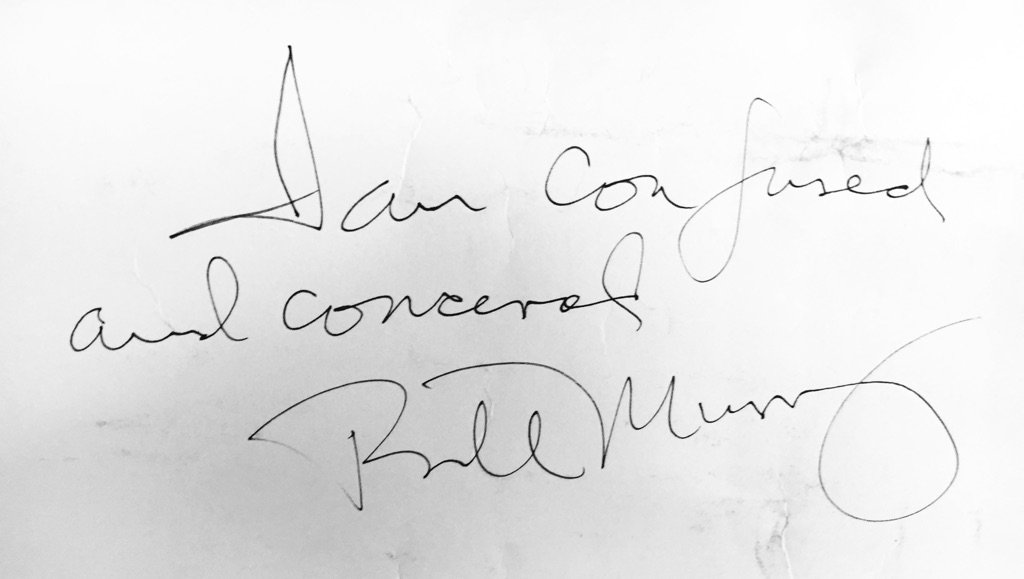 I am confused
and concerned
Bill Murray